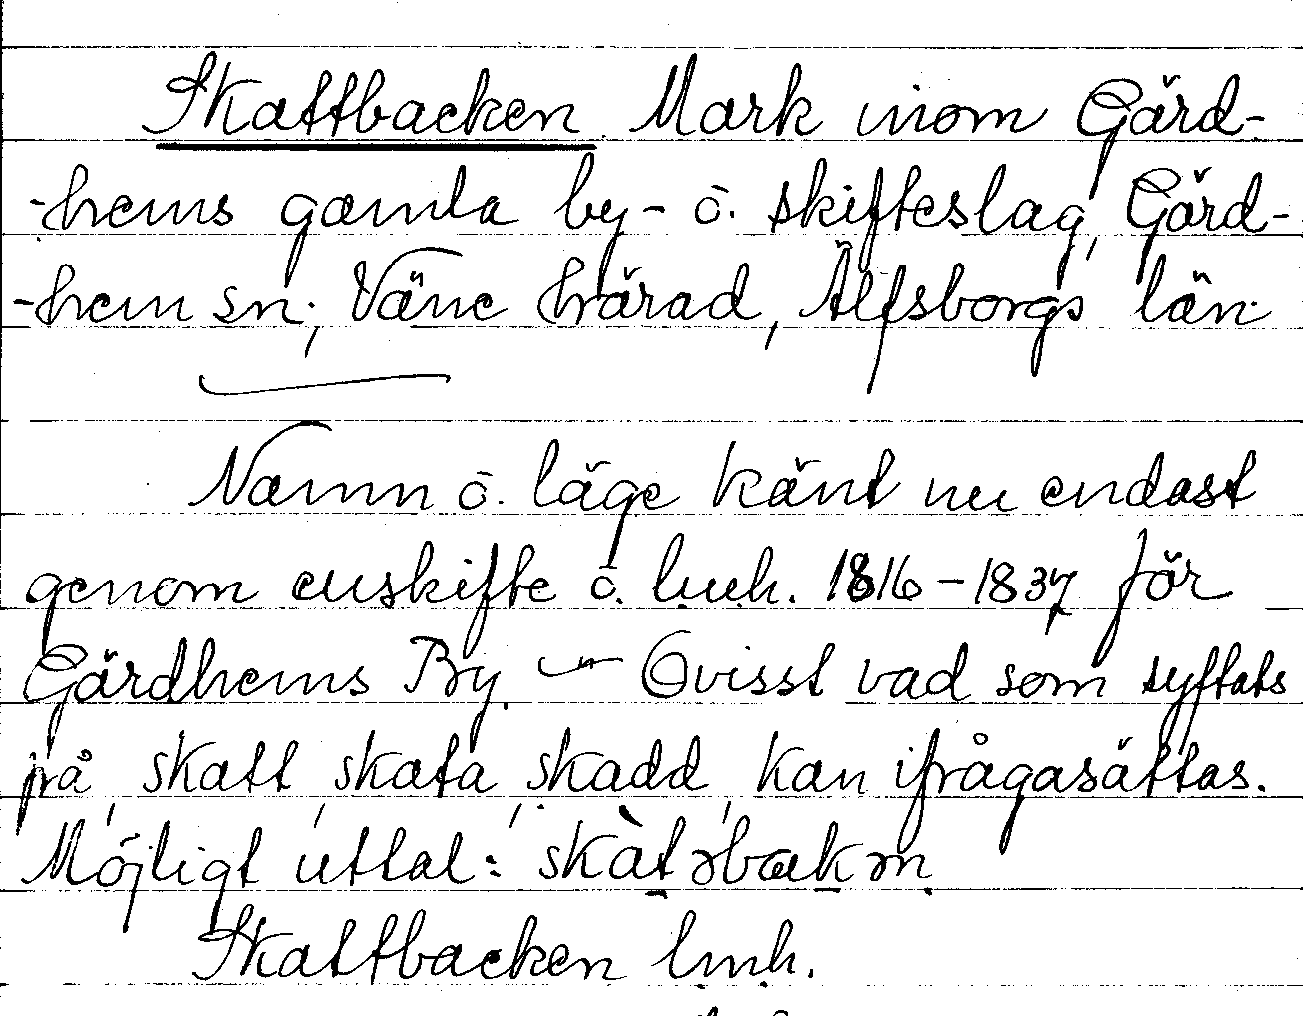 Skattbacken Mark inom Gärd-
-hems gamla by- o. skifteslag, Gärd-
-hem sn., Väne härad, Älfsborgs län.
Namn o. läge känt nu endast
genom enskifte o. lmh. 1816-1837 för
Gärdhems By. — Ovisst vad som syftats
på, skatt, skata, skadd, kan ifrågasättas.
Möjligt uttal:
Skattbacken lmh.